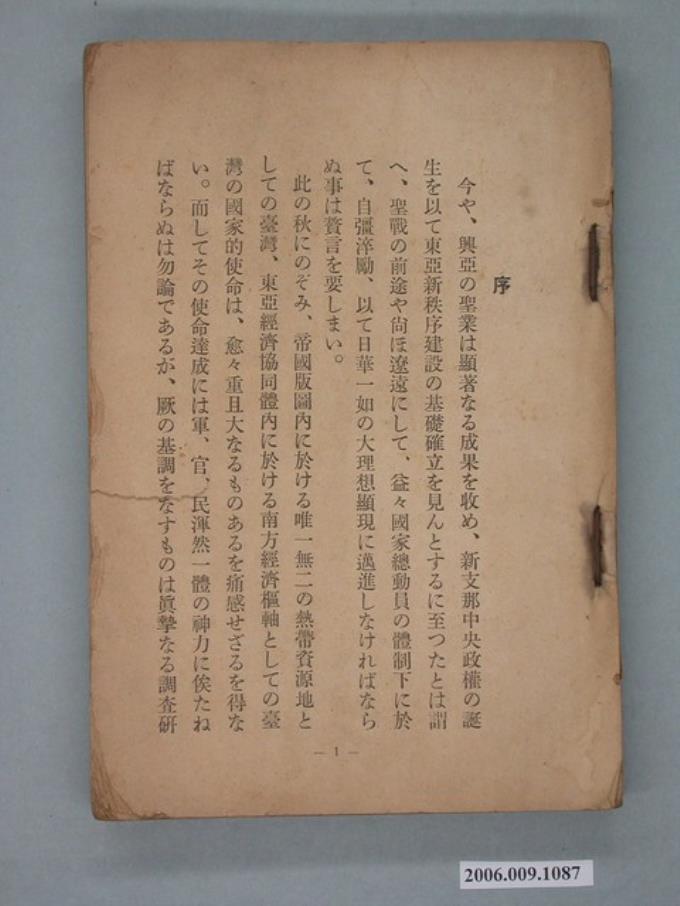 序
今や、興亞の聖業は顯著なる成果を收め、新支那中央政權の誕
生を以て東亞新秩序建設の基礎確立を見んとするに至つたとは謂
へ、聖戰の前途や尙ほ遼遠にして、益々國家總動員の體制下に於
て、自彊淬勵、以て日華一如の大理想顯現に邁進しなければなら
ぬ事は贅言を要しまい。
此の秋にのぞみ、帝國版圖內に於ける唯一無二の熱帶資源地と
しての臺灣、東亞經濟協同體內に於ける南方經濟樞軸としての臺
灣の國家的使命は、愈々重且大なるものあるを痛感せざるを得な
い。而してその使命達成には軍、官、民渾然一體の神力に俟たね
ばならぬは勿論であるが、厥の基調をなすものは眞摯なる調査硏
— 1 —
2006.009.1087